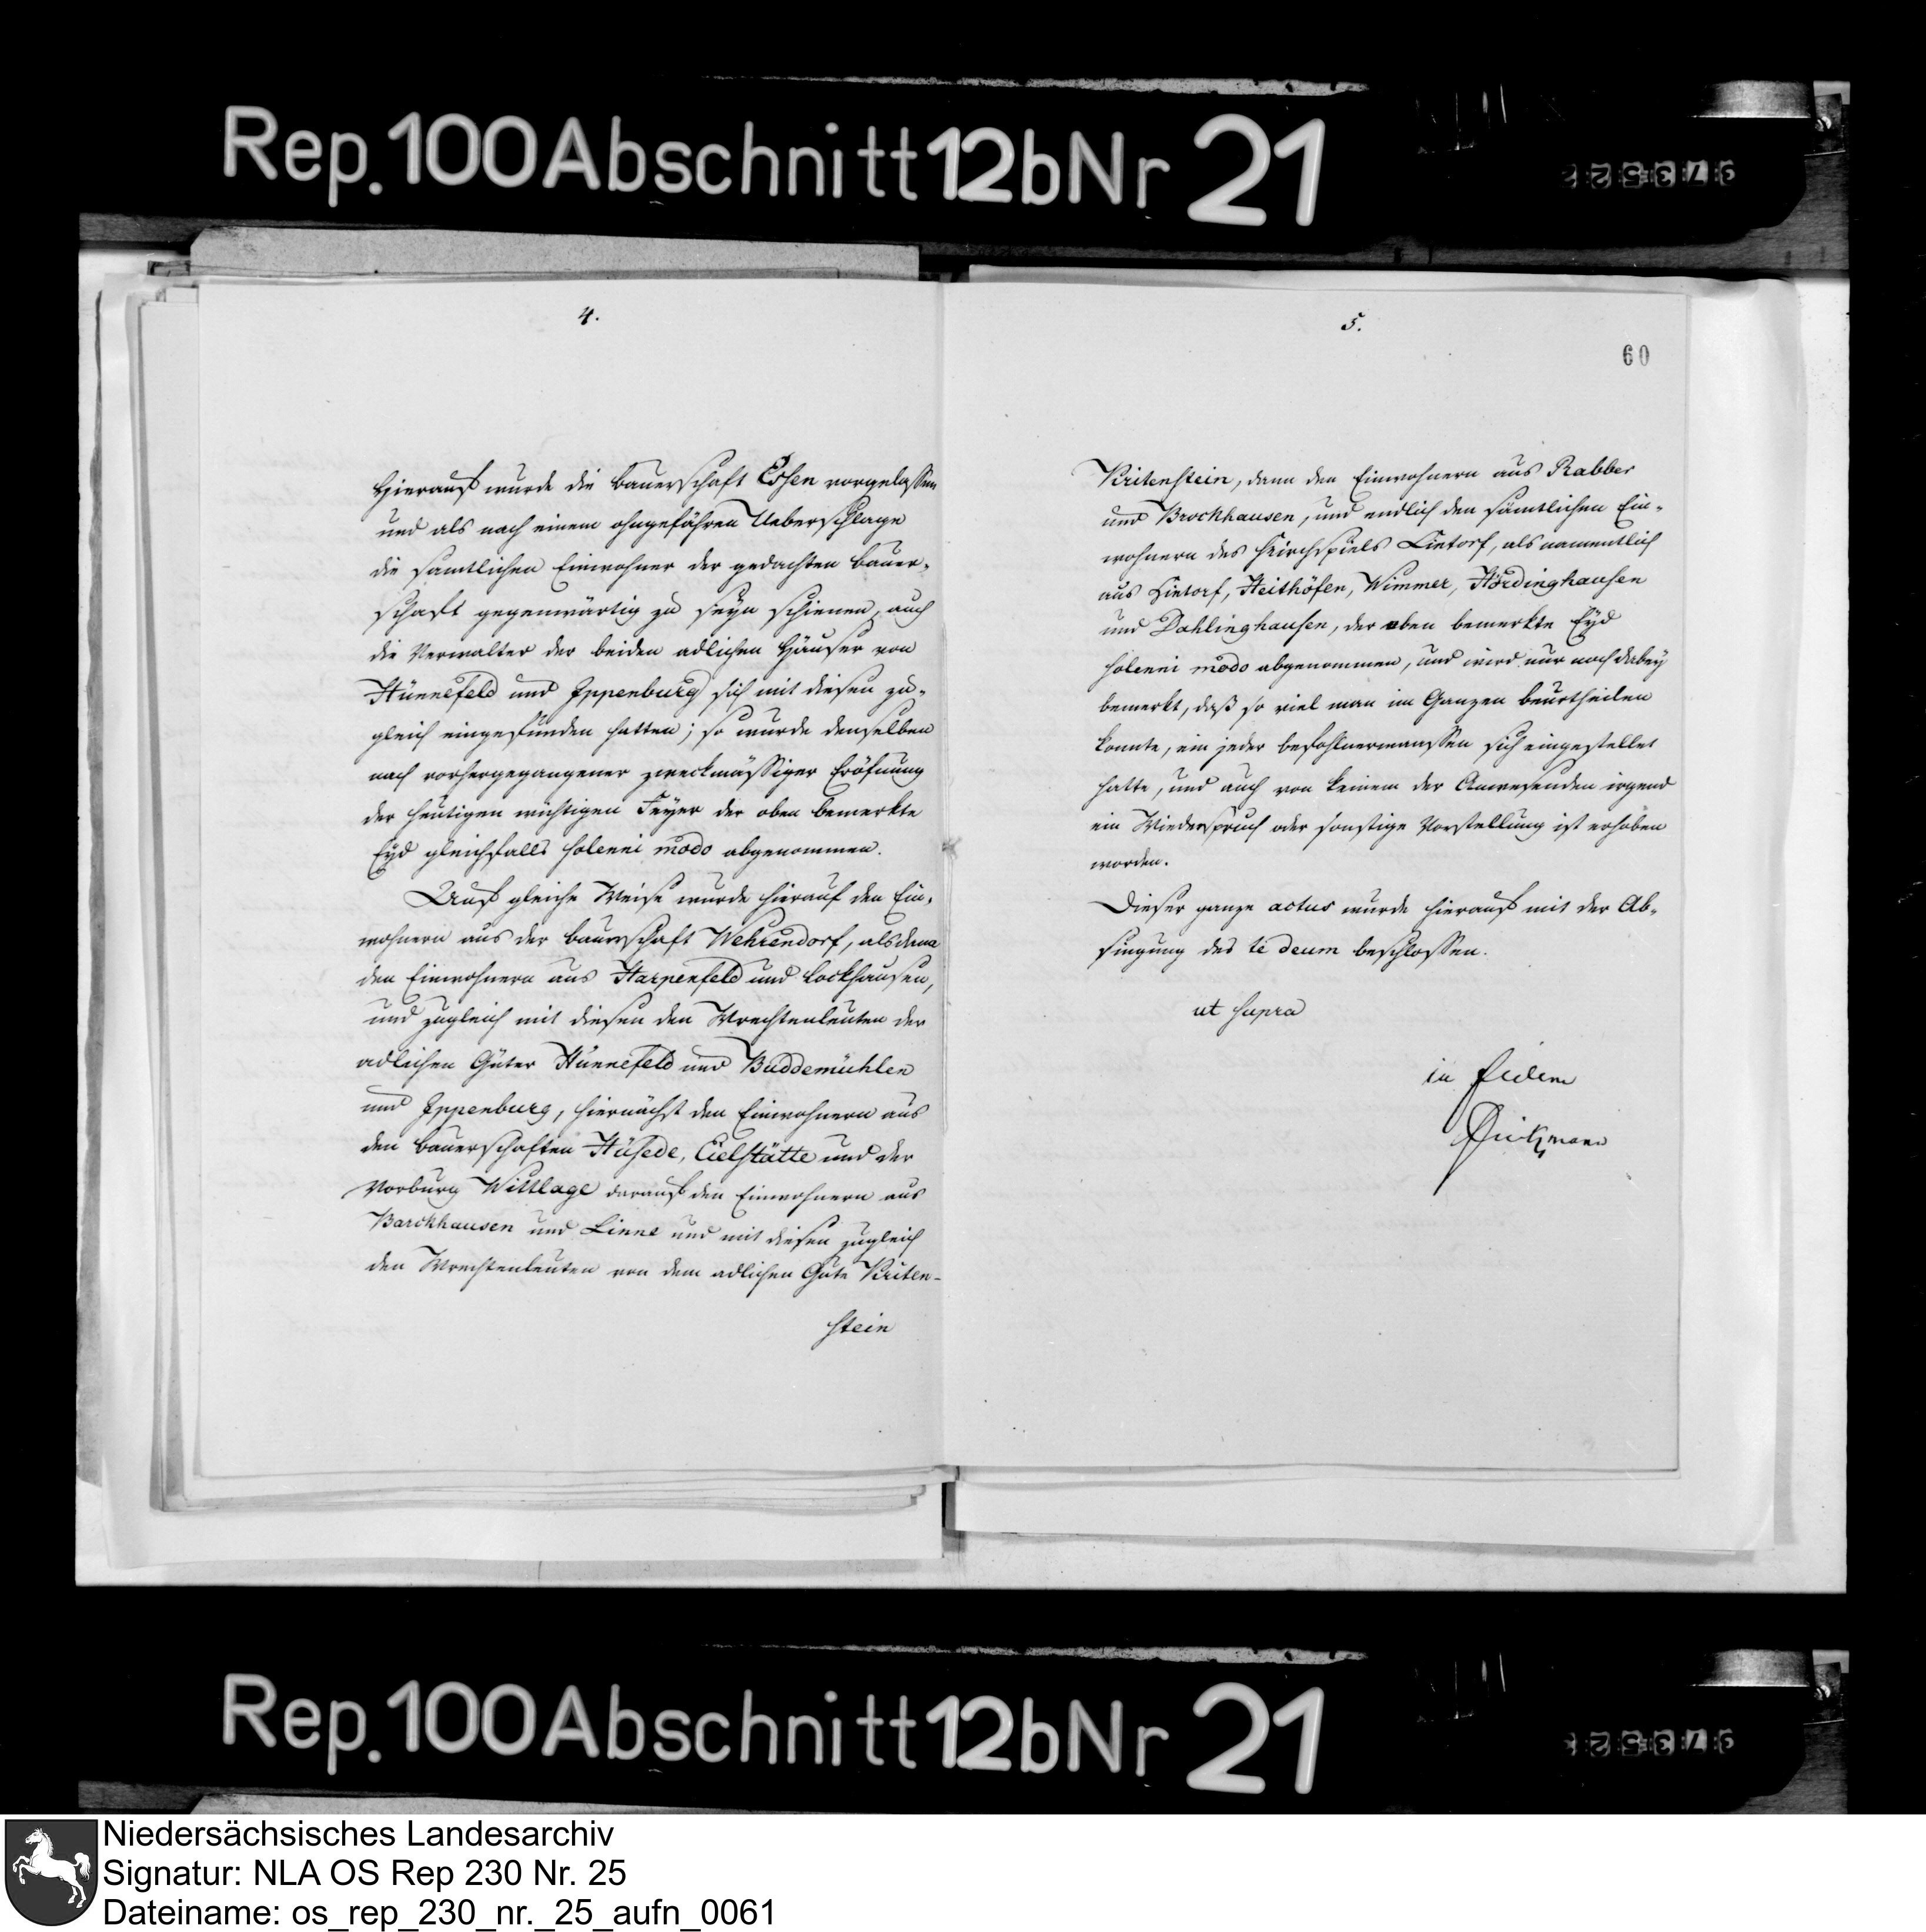 Rep. 100 Abschnitt 12b Nr 21
4.
Hierauf wurde die Bauerschaft Essen vorgelassen
und als nach einem ohngefähren Ueberschlage
die samtlichen Einwohner der gedachten Bauer-
schaft gegenwärtig zu seyn schienen, auch
die Verwalter der beiden adlichen Häuser von
Hünnefeld und Ippenburg sich mit diesen zu-
gleich eingefunden hatten; so wurde denselben
nach vorhergegangener zweckmässiger Eröfnung
der heutigen wichtigen Feyer der oben bemerkte
Eyd gleichfalls solenni modo abgenommen.
Auf gleiche Weise wurde hierauf den Ein-
wohnern aus der Bauerschaft Wehrendorf, alsdenn
den Einwohnern aus Harpenfeld und Lockhausen,
und zugleich mit diesen den Wrechtenleuten der
adlichen Güter Hünnefeld und Buddemühlen
und Ippenburg, hiernächst den Einwohnern aus
den Bauerschaften Hüsede, Eielstätte und der
Vorburg Wittlage darauf den Einwohnern aus
Barckhausen und Linne und mit diesen zugleich
den Wrechtenleuten von dem adlichen Gute Kriten-
stein
5.
60
Kritenstein, dann den Einwohnern aus Rabber
und Brockhausen, und endlich den sämtlichen Ein-
wohnern des Kirchspiels Lintorf, als namentlich
aus Lintorf, Heithöfen, Wimmer, Hördinghausen
und Dahlinghausen, der oben bemerkte Eyd
solenni modo abgenommen, und wird nur noch dabey
bemerkt, daß so viel man im Ganzen beurtheilen
konnte, ein jeder befohlnermanssen sich eingestellet
hatte, und auch von keinem der Anwesenden irgend
ein Wiederspruch oder sonstige Vorstellung ist erhoben
worden.
Dieser ganze actus wurde hierauf mit der Ab-
singung des te deum beschlossen.
ut supra
in fidem
Rep. 100 Abschnitt 12b Nr 21
Niedersächsisches Landesarchiv
Signatur: NLA OS Rep 230 Nr. 25
Dateiname: os_rep_230_nr._25_aufn_0061